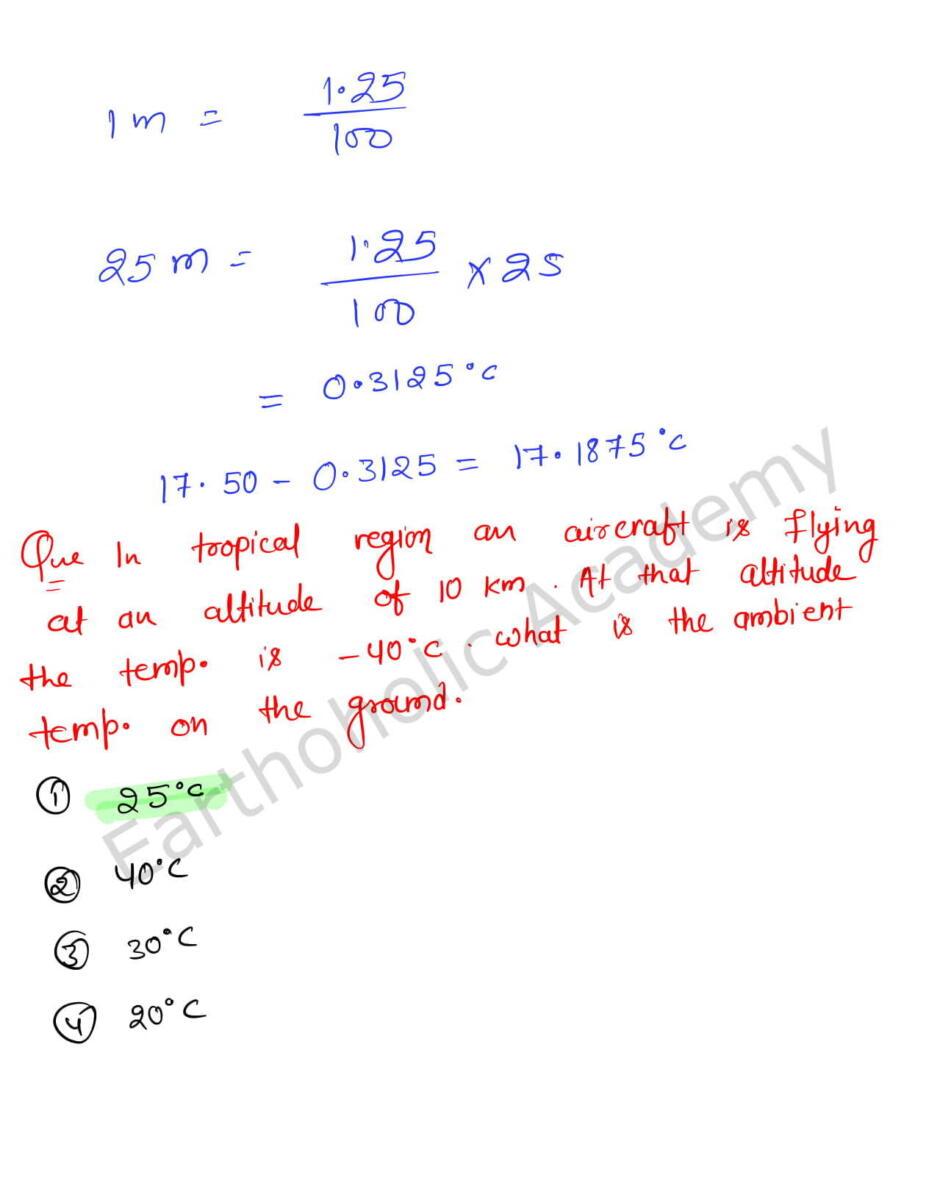 1 m = 1.25 / 100
25 m = 1.25 / 100 × 25
= 0.3125°C
17.50 - 0.3125 = 17.1875°C
Que In tropical region an aircraft is flying
at an altitude of 10 km. At that altitude
the temp. is -40°C. what is the ambient
temp. on the ground.
① 25°C
② 40°C
③ 30°C
④ 20°C
Earthoholic Academy